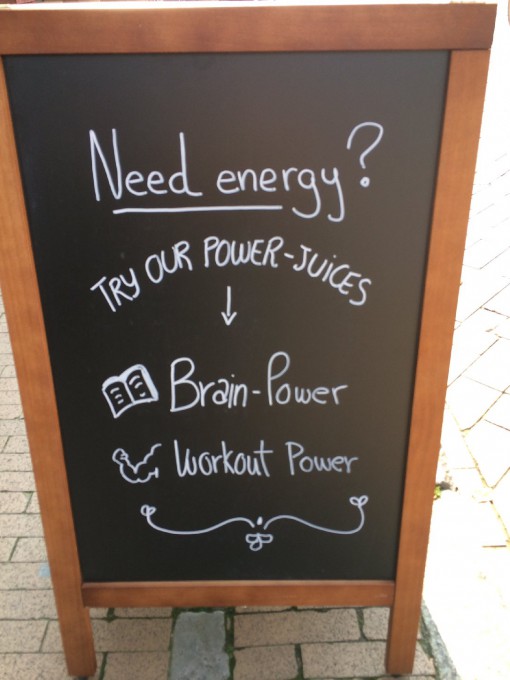 Need energy?
TRY OUR POWER-JUICES
Brain-Power
Workout Power